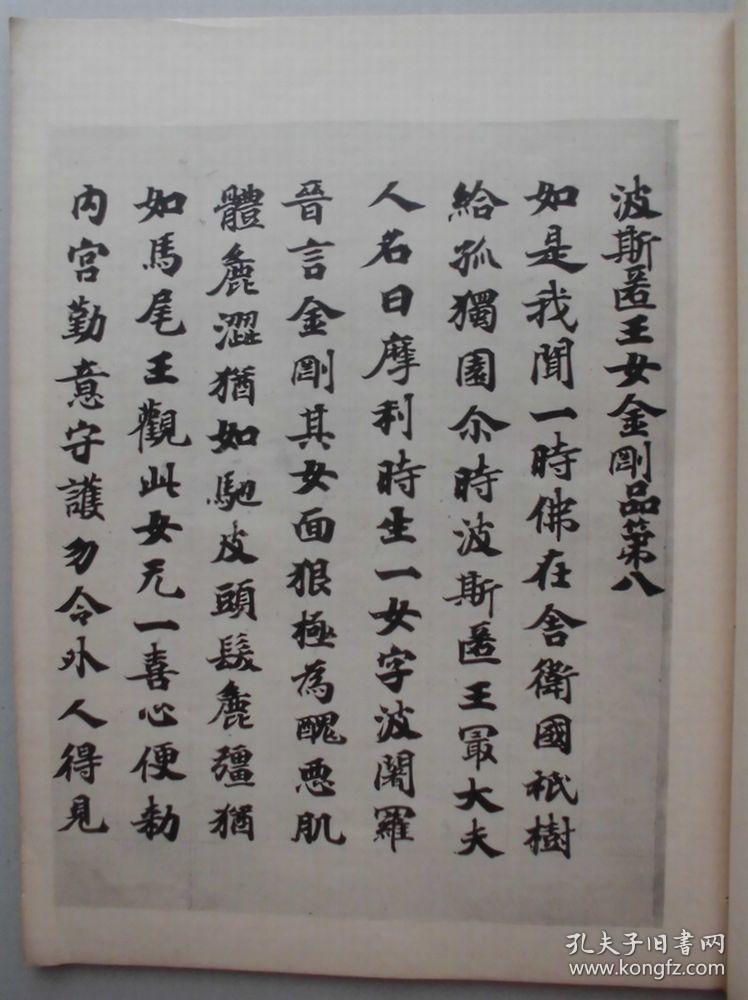 波斯匿王女金剛品第八
如是我聞一時佛在舍衛國祇樹
給孤獨園尒時波斯匿王冣大夫
人名曰摩利時生一女字波闍羅
晉言金剛其女面狠極為醜惡肌
體麁澀猶如馳皮頭髮麁彊猶
如馬尾王觀此女无一喜心便勑
内宮勤意守護勿令外人得見
孔夫子旧書网
www.kongfz.com